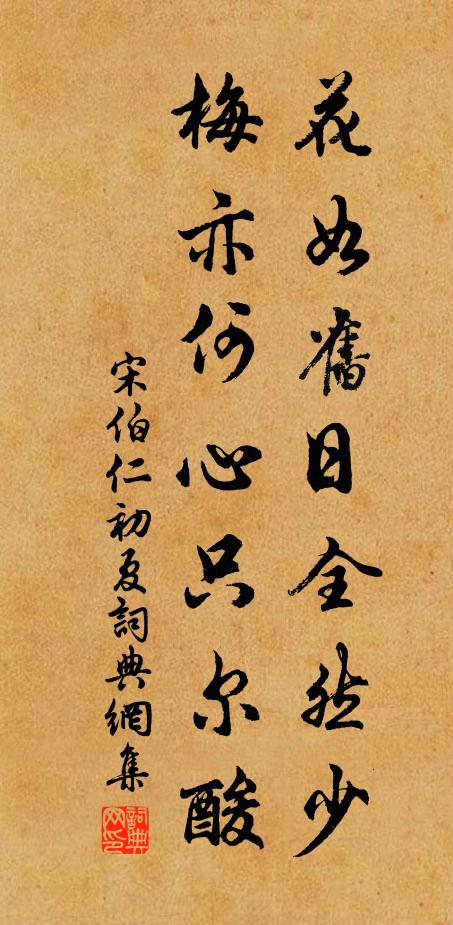 花如舊日全然少
梅亦何心只尔酸
宋伯仁初夏詞典網集
詞典网印